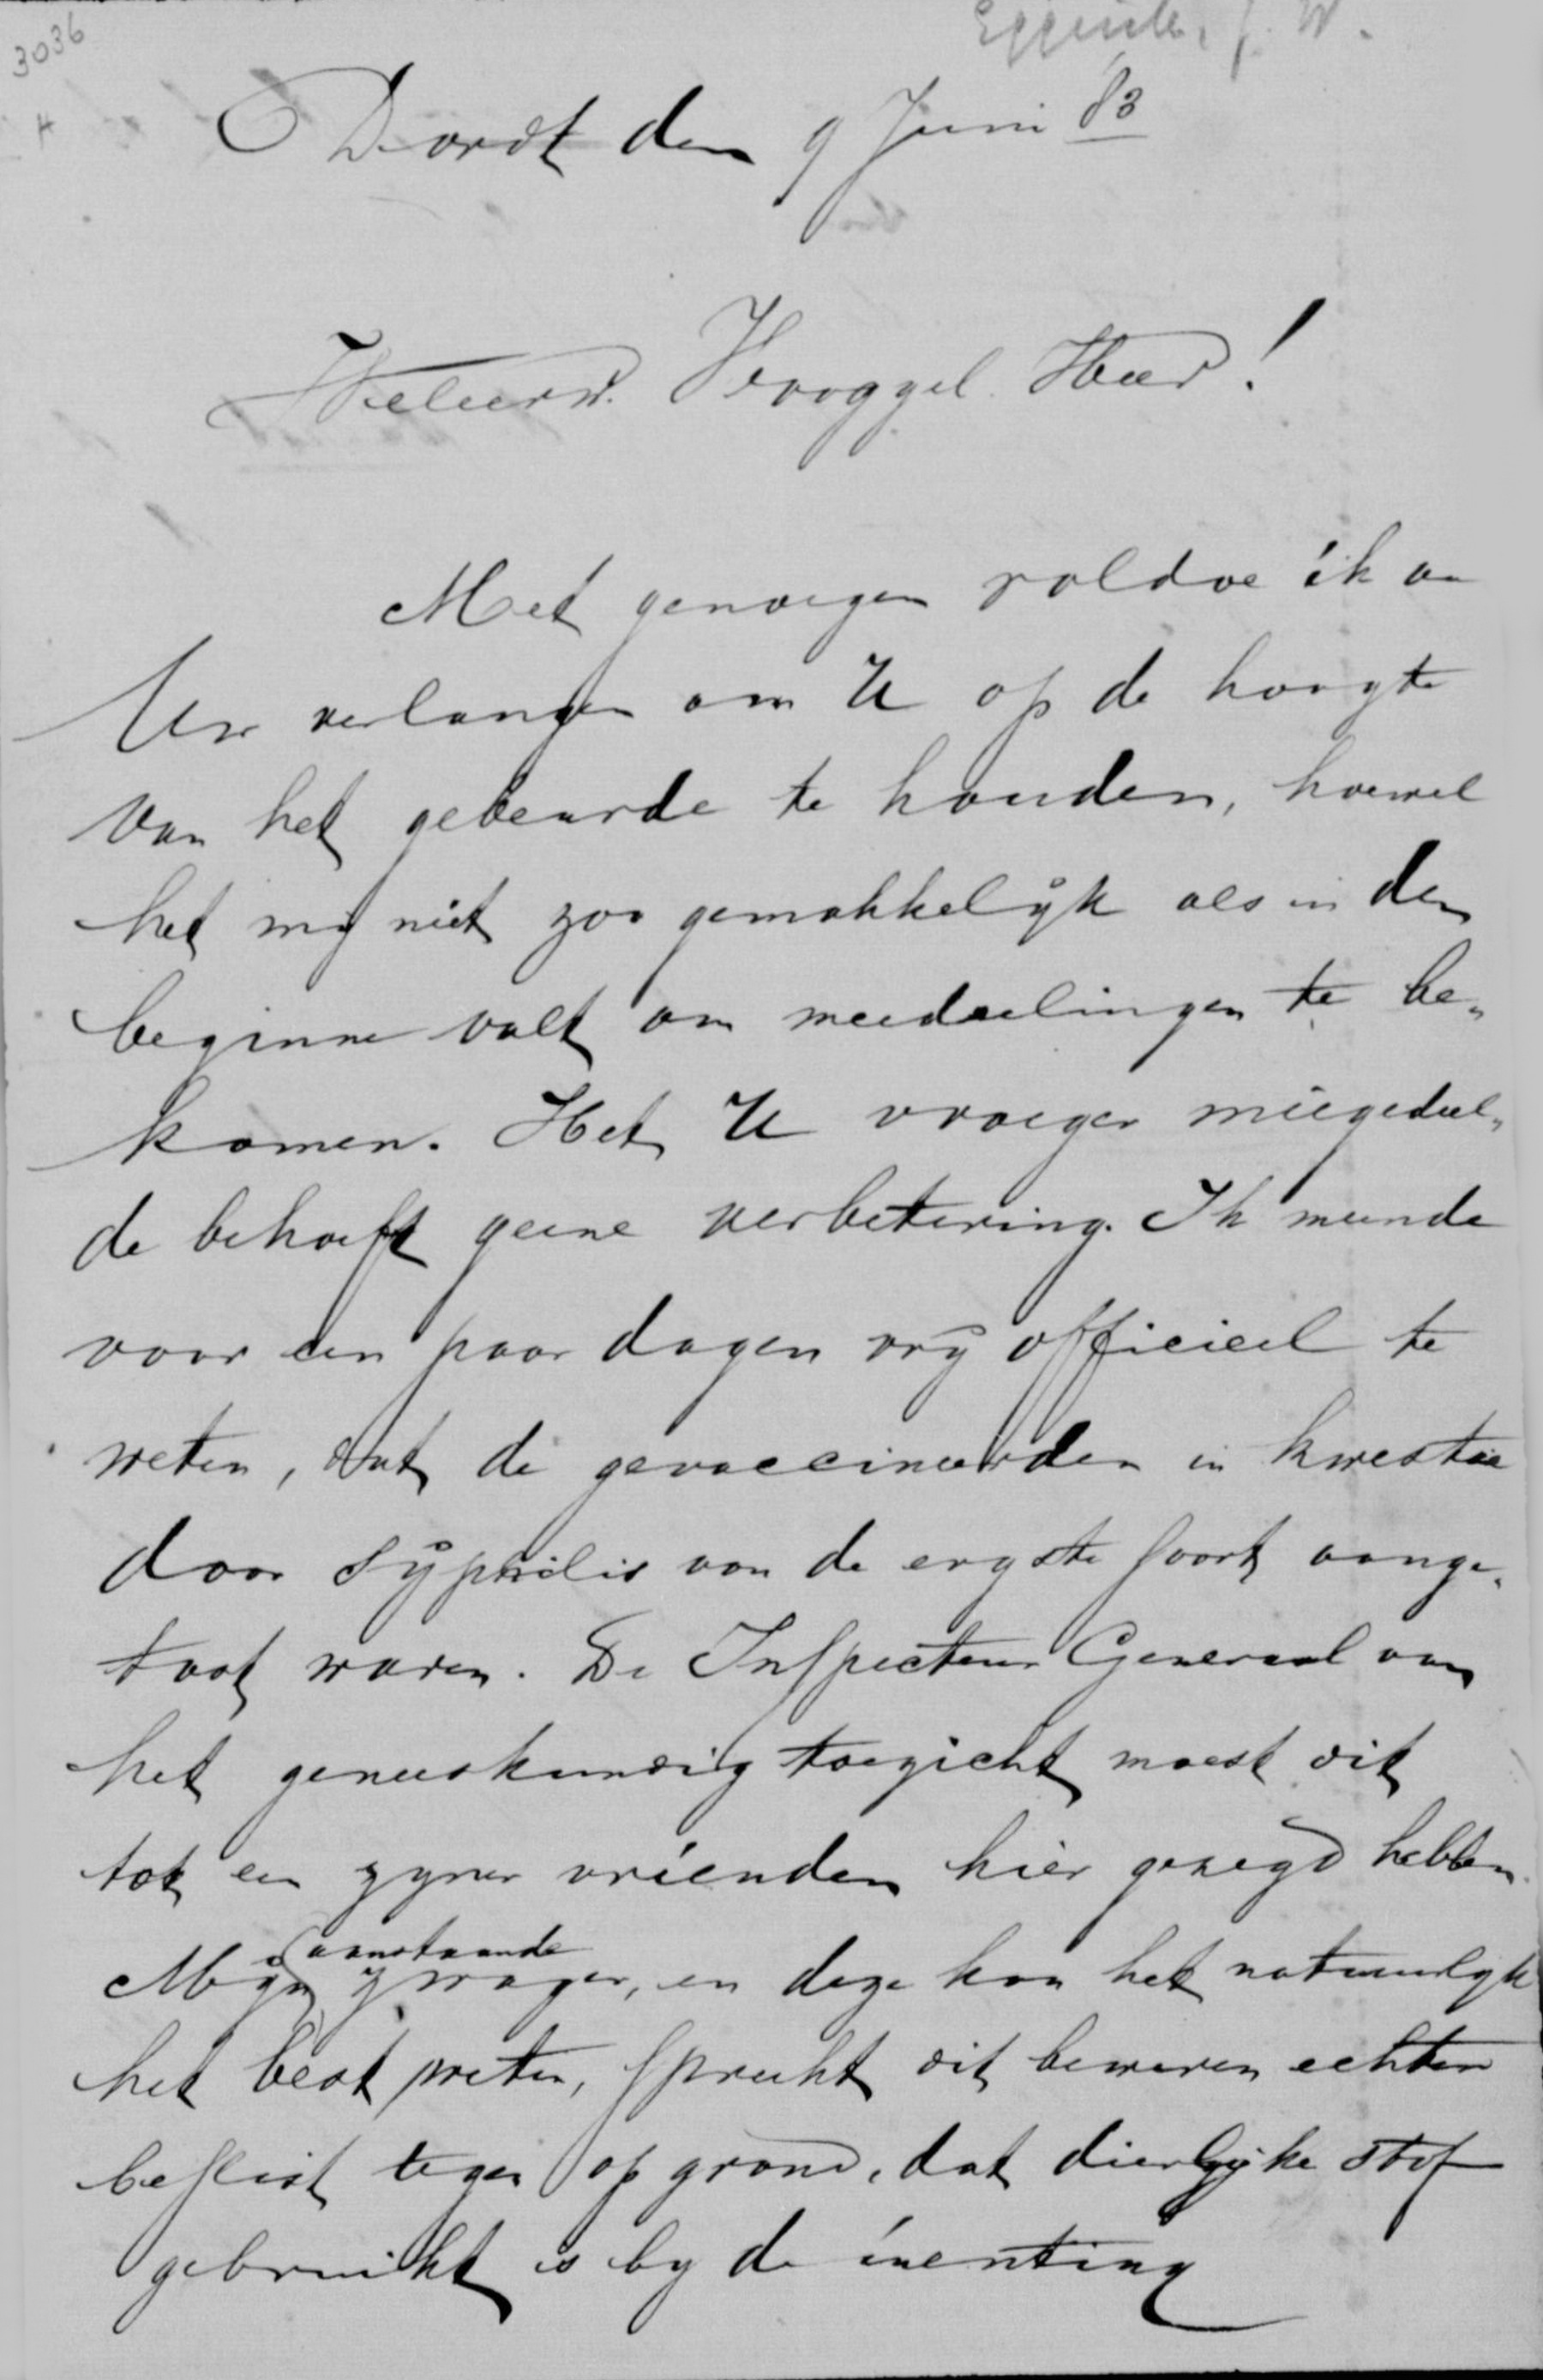 3036
Dordt den 9 Juni 83
Weleerw. Hooggel. Heer!
Met genoegen voldoe ik aan
Uw verlangen om U op de hoogte
van het gebeurde te houden, hoewel
het mij niet zoo gemakkelijk als in den
beginne valt om meedeelingen te be-
komen. Het U vroeger meegedeel-
de behoeft geene verbetering. Ik meende
voor een paar dagen vrij officieel te
weten, dat de gevaccineerden in kwestie
door syphilis van de ergste soort aange-
tast waren. De Inspecteur Generaal van
het geneeskundig toezicht moest dit
tot een zyner vrienden hier gezegd hebben.
aanstaande
Mijn zwager, en deze kan het natuurlyk
het best weten, spreekt dit beweren echter
beslist tegen op grond, dat dierlijke stof
gebruikt is by de inenting